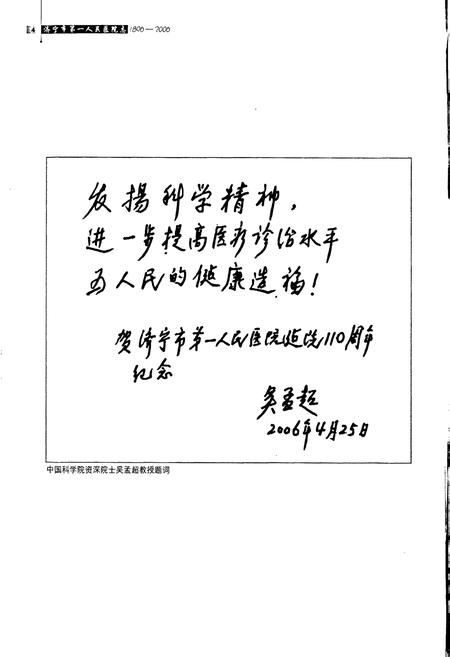 济宁市第一人民医院志 1896—2006
发揚科学精神，
进一步提高医疗诊治水平
为人民的健康造福！
贺济宁市第一人民医院建院110周年
纪念
吴孟超
2006年4月25日
中国科学院资深院士吴孟超教授题词